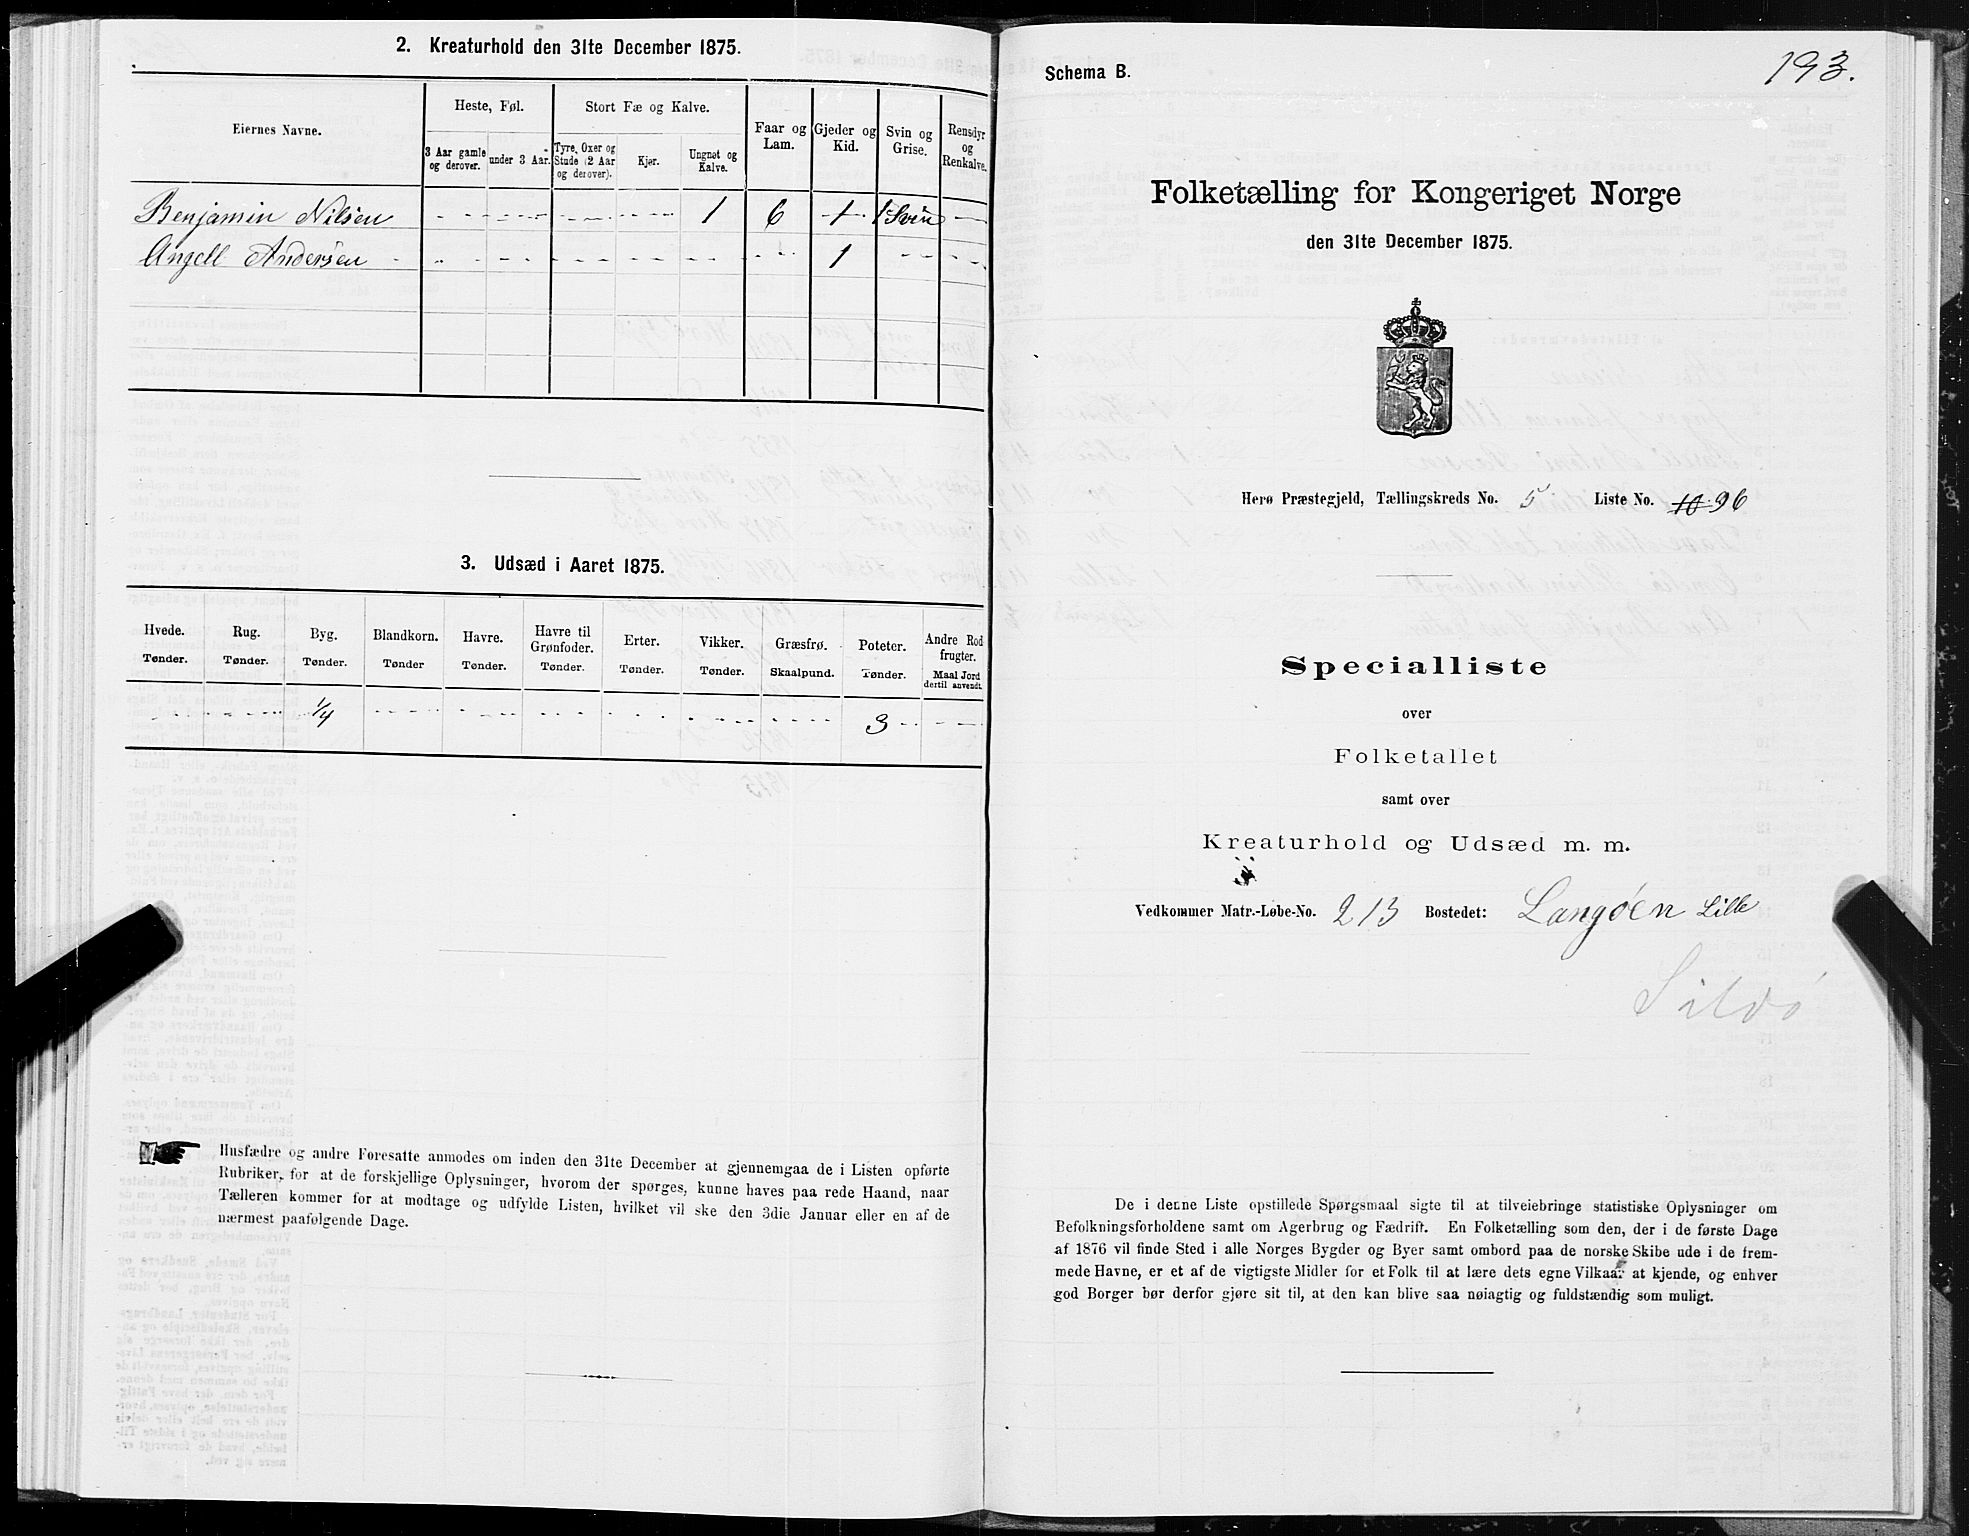 2. Kreaturhold den 31te December 1875.
Eiernes Navne.
Heste, Føl.
Stort Fæ og Kalve.
Faar og Lam.
Gjeder og Kid.
Svin og Grise.
Rensdyr og Renkalve.
3 Aar gamle og derover.
under 3 Aar.
Tyre, Oxer og Stude (2 Aar og derover).
Kjør.
Ungnøt og Kalve.
Benjamin Nilsen - - - - - - - - - - 1 6 1 1 Svin - -
Angell Andersen - - - - - - - - - - 1 - - - -
3. Udsæd i Aaret 1875.
Hvede. Rug. Byg. Blandkorn. Havre. Havre til Grønfoder. Erter. Vikker. Græsfrø. Poteter. Andre Rodfrugter.
Tønder. Tønder. Tønder. Tønder Tønder. Tønder. Tønder. Tønder. Skaalpund. Tønder. Maal Jord dertil anvendt.
1/4 3
Husfædre og andre Foresatte anmodes om inden den 31te December at gjennemgaa de i Listen opførte
Rubriker, for at de forskjellige Oplysninger, hvorom der spørges, kunne haves paa rede Haand, naar
Tælleren kommer for at modtage og udfylde Listen, hvilket vil ske den 3die Januar eller en af de
nærmest paafølgende Dage.
193.
Schema B.
Folketælling for Kongeriget Norge
den 31te December 1875.
Herø Præstegjeld, Tællingskreds No. 5 Liste No. 10 96
Specialliste
over
Folketallet
samt over
Kreaturhold og Udsæd m. m.
Vedkommer Matr.-Løbe-No. 213 Bostedet: Langöen Lille
Sildö
De i denne Liste opstillede Spørgsmaal sigte til at tilveiebringe statistiske Oplysninger om
Befolkningsforholdene samt om Agerbrug og Fædrift. En Folketælling som den, der i de første Dage
af 1876 vil finde Sted i alle Norges Bygder og Byer samt ombord paa de norske Skibe ude i de frem-
mede Havne, er et af de vigtigste Midler for et Folk til at lære dets egne Vilkaar at kjende, og enhver
god Borger bør derfor gjøre sit til, at den kan blive saa nøiagtig og fuldstændig som muligt.